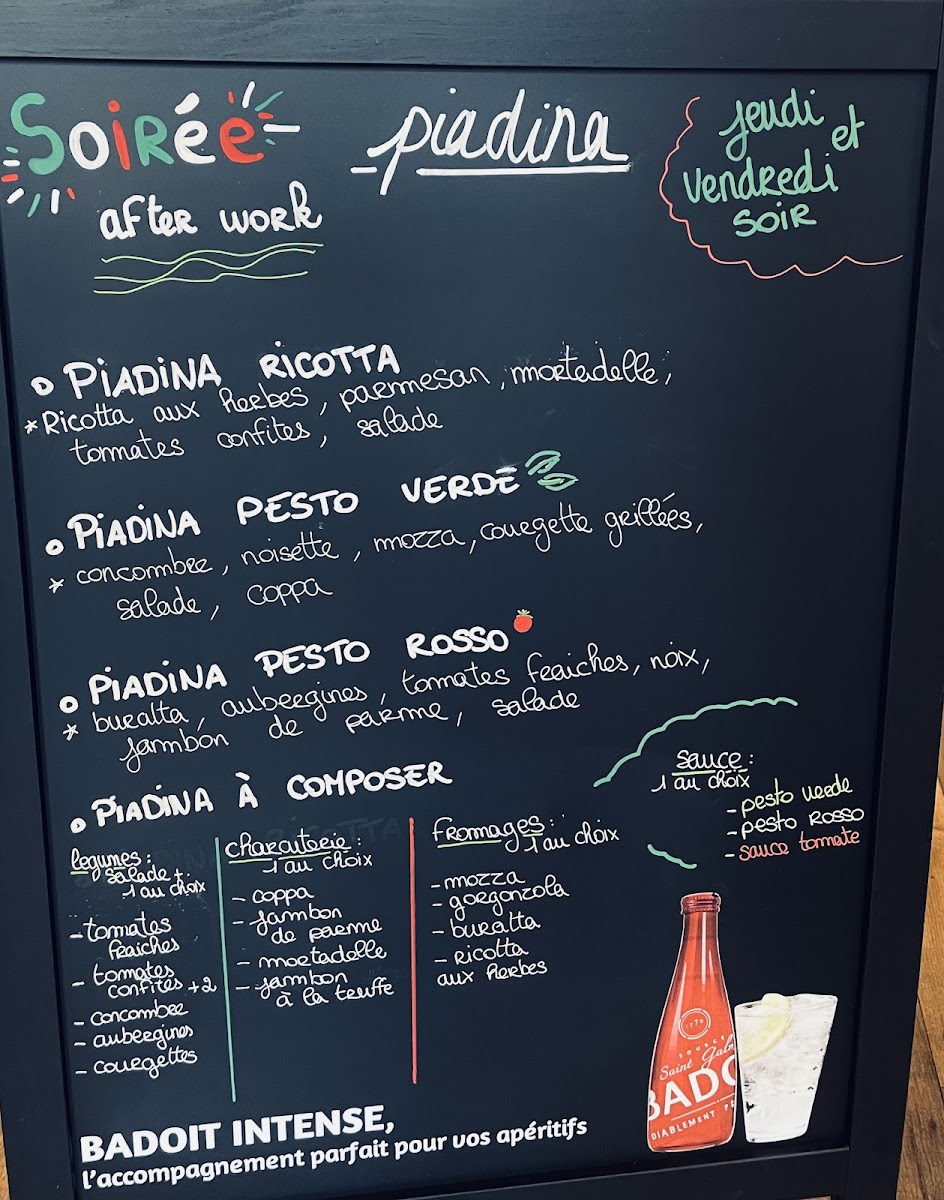 Soirée
after work
piadina
jeudi et
vendredi
soir
PIADINA RICOTTA
*Ricotta aux herbes, parmesan, mortadelle,
tomates confites, salade
PIADINA PESTO VERDE
* concombre, noisette, mozza, courgette grillées,
salade, coppa
PIADINA PESTO ROSSO
* buralta, aubergines, tomates fraiches, noix,
jambon de parme, salade
PIADINA À COMPOSER
legumes:
salade +
1 au choix
- tomates
fraiches
- tomates
confites +2
- concombre
- aubergines
- courgettes
charcuterie:
1 au choix
- coppa
- jambon
de parme
- mortadelle
- jambon
à la truffe
fromages:
1 au choix
- mozza
- gorgonzola
- buratta
- ricotta
aux herbes
sauce:
1 au choix
- pesto verde
- pesto rosso
- sauce tomate
1778
SOURCE
Saint Galm
BADO
DIABLEMENT
BADOIT INTENSE,
l'accompagnement parfait pour vos apéritifs